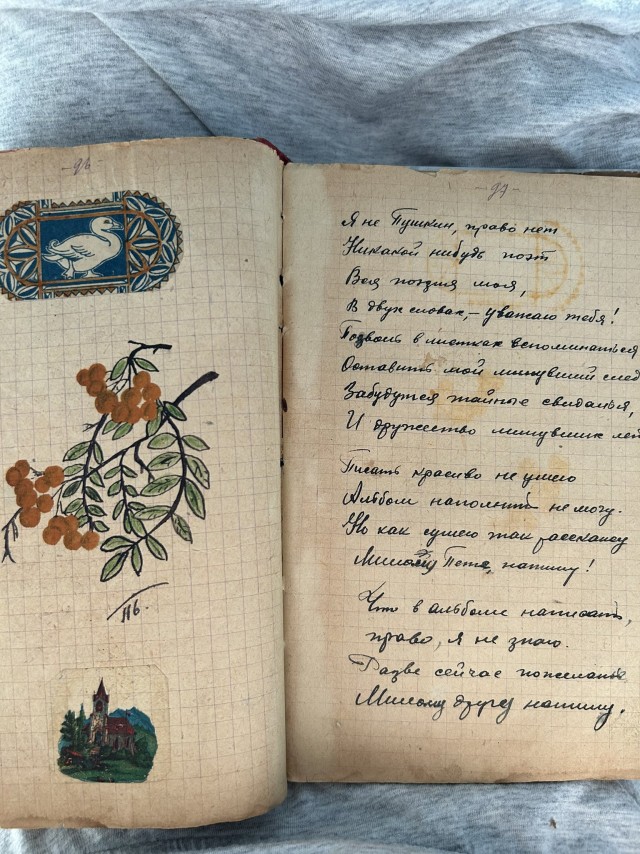 -96-
-97-
Я не Пушкин, право нет
Никакой нибудь поэт
Вся поэзия моя,
В двух словах, – уважаю тебя!
Позволь в листках вспоминаться
Оставить мой минувший след
Забудутся тайные свиданья,
И дружество минувших лет
Писать красиво не умею
Альбом наполнить не могу.
Но как сумею так расскажу
Милому Пете, напишу!
Что в альбоме написать,
право, я не знаю.
Разве сейчас пожеланье
Милому другу напишу.